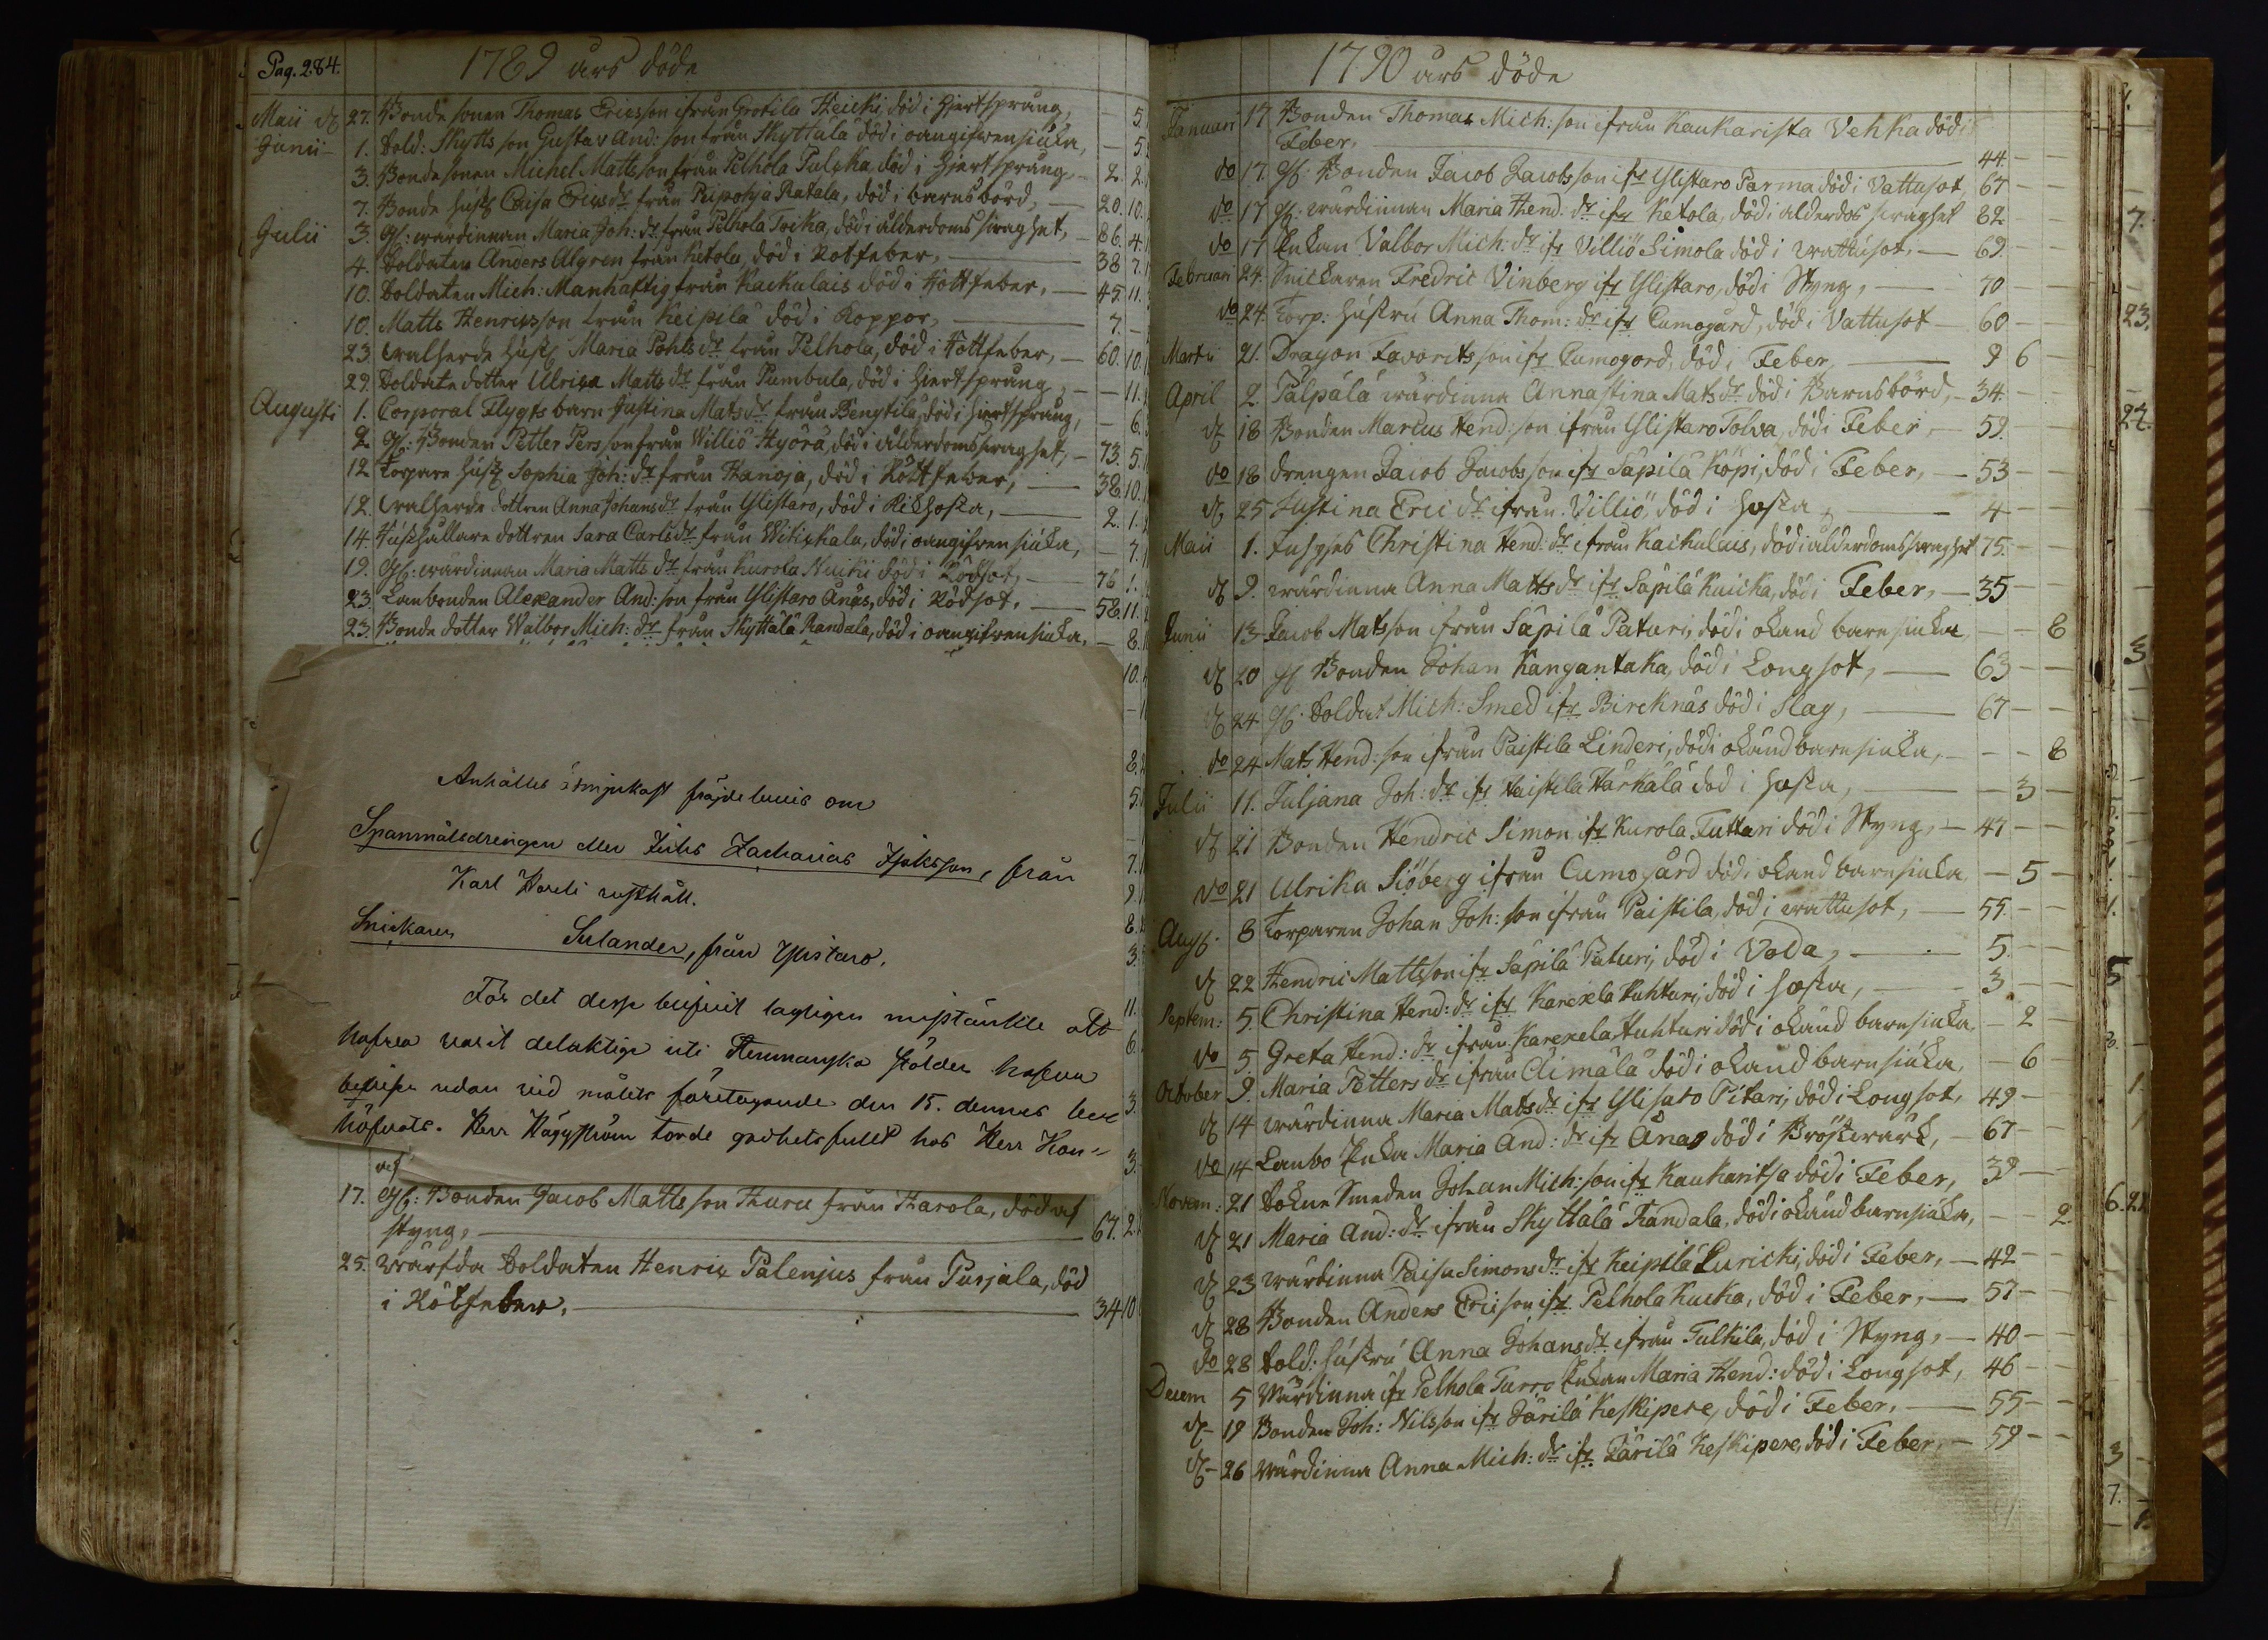 Pag. 284.
1789 års döde
Maii d 27. Bonde sonen Thomas Ericsson ifrån Grotila Heicki död i Hjertsprång, — 5.
Junii 1. Sold: Skytts son Gustav And: son från Skyttälä död i oangifven siuka, — 5.
3. Bonde sonen Michel Mattsson från Pelhola Pulcka, död i Hjertsprång, 2. 2.
7. Bonde hust Caisa Ericsdr från Peipohja Ratala, död i barnsbörd, — 20. 10.
Julii 3. Gl: wärdinnan Maria Joh: dr från Pelhola Troika, död i ålderdoms swaghet, 86. 4.
4. Soldaten Anders Algren från Ketola, död i Rotfeber, — 38 7.
10. Soldaten Mich: Manhaftig från Kackulais död i Röttfeber, — 45. 11.
10. Matts Henricsson från Keipilä död i Koppor, — 7. —
23. walherde hust Maria Pohlsdr från Pelhola, död i Röttfeber, — 60. 10.
29. Soldate dotter Ulrica Matts dr från Pumbula, död i Hiertsprång, — 11.
Augusti 1. Corporal Flygts barn Justina Matsdr från Bengtilä, död i Hiertsprång, — 6.
2. Gl: Bonden Petter Persson från Williö Hyörä, död i ålderdomsswaghet, — 73. 5.
12 Torpare hust Sophia Joh: dr från Hanoja, död i Röttfeber, — 38. 10.
12. walherde dottren Anna Johansdr från Ylistaro, död i Kikhosta, — 2. 1.
14. Hushållare dottren Sara Carlsdr från Witickala, död i oangifven siuka, — 7.
19. Gl: wärdinnan Maria Matts dr från Kurola Nuicki död i Rödsot, — 76 1.
23. Lanbonden Alexander And: son från Ylistaro Anäs, död i Rödsot, — 58. 11.
23. Bonde dotter Walbor Mich: dr från Skyttälä Randala, död i oangifven siuka, — 8.
Anhålles ödmjukast fräjdebevis om
Spanmålsdrengen eller Zachris Zacharias Isaksson, från
Karl Hareli rusthåll.
Snickaren Sulander, från Ylistaro.
För det desse blifvit lagligen misstänkte att
hafva varit delaktige uti Hemmanska stölden hafva
bevisen udan vid målets företagande den 15. dennes
höfvats. Herr Häggström torde godhetsfullt hos Herr Kon-
17. Gl: Bonden Jacob Matts son Huru från Harola, död af
styng, — 67. 2.
25. wärfda Soldaten Henric Palenjus från Pusjala, död
i Rötfeber, — 34 10
1790 års döde
Januari 17 Bonden Thomas Mich: son ifrån Kaukarista Vehka död i
Feber, — 44 — —
do 17. Gl: Bonden Jacob Jacobsson ifr Ylistaro Parma död i Vattusot, 67 — —
do 17 Gl: wärdinnan Maria Hend: dr ifr Ketola, död i alderdos swaghet 82 —
do 17 Enkan Valbor Mich: dr ifr Villiö Simola död i wattusot, — 69. —
Februari 24. Snickaren Fredric Vinberg ifr Ylistaro, död i Styng, — 70 —
do 24. Torp: Hustru Anna Thom: dr ifr Cumogård, död i Vattusot — 60 —
Martii 21. Dragon Favorits son ifr Cumogord, död i Feber, — 9 6 —
April 2. Palpälä wärdinna Annastina Mats dr död i Barnsbörd, — 34 —
d 18 Bonden Marcus Hend: son ifrån Ylistaro Tolva, död i Feber, — 59. —
do 18 drengen Jacob Jacobsson ifr Säpilä Köpi, död i Feber, — 53 —
d 25 Justina Eric dr ifrån Villiö, död i hosta, — 4 — —
Maii 1. Inhyses Christina Hend: dr ifrån Kackulais, död i ålderdomsswaghet 75. —
d 9. wärdinna Anna Matts dr ifr Säpilä Kuicka, död i Feber, — 35 —
Junii 13 Jacob Matsson ifrån Säpilä Paturi, död i okänd barnsiuka — — 8
d 20 Gl Bonden Johan Kangantaka, död i Longsot, — 63 —
d 24 Gl: Soldat Mich: Smed ifr Bircknäs död i Slag, — 67 — —
do 24 Mats Hend: son ifrån Paistila Linderi, död i okänd barnsiuka, — — 8
Julii 11. Juljana Joh: dr ifr Haistila Härkälä död i hosta, — — 3 —
d 21 Bonden Hendric Simon ifr Kurola Tuttari död i Styng, — 47 — —
do 21 Ulrika Siöberg ifrån Cumogård död i okänd barnsiuka — 5 —
Aug. 8 Torparen Johan Joh: son ifrån Paistila, död i wattusot, — 55. — —
d 22 Hendric Mattsson ifr Säpilä Paturi, död i Voda, — 5. — —
Septem: 5. Christina Hend: dr ifr Karexela Huhturi, död i hosta, — 3 — —
do 5. Greta Hend: dr ifrån Karexela Huhturi död i okänd barnsiuka. — 2 —
October 9. Maria Petters dr ifrån Äimälä död i okänd barnsiuka, — 6 —
d 14 wärdinna Maria Mats dr ifr Ylistaro Pitari, död i Longsot, 49 —
do 14 Lanbo Enka Maria And: dr ifr Ånäs död i Bröstwärk, — 67 — —
Novem: 21 Sokne Smeden Johan Mich: son ifr Kaukaritsa död i Feber, 39 — —
d 21 Maria And: dr ifrån Skyttälä Randala, död i okänd barnsiuka, — — 2.
d 23 wärdinna Caisa Simons dr ifr Keipilä Luricki, död i Feber, — 42 —
d 28 Bonden Anders Ericson ifr Pelhola Kucka, död i Feber, — 57 —
do 28 Sold: hustru Anna Johansdr ifrån Tulkila, död i Styng, — 40 — —
Decem 5 Wärdinna ifr Pelhola Turro Enkan Maria Hend: död i Longsot, 46 — —
d 19 Bonden Joh: Nilsson ifr Järilä Keskipere, död i Feber, — 55 — —
d 26 Wärdinna Anna Mich: dr ifr Järilä Keskipere, död i Feber, — 59 — —